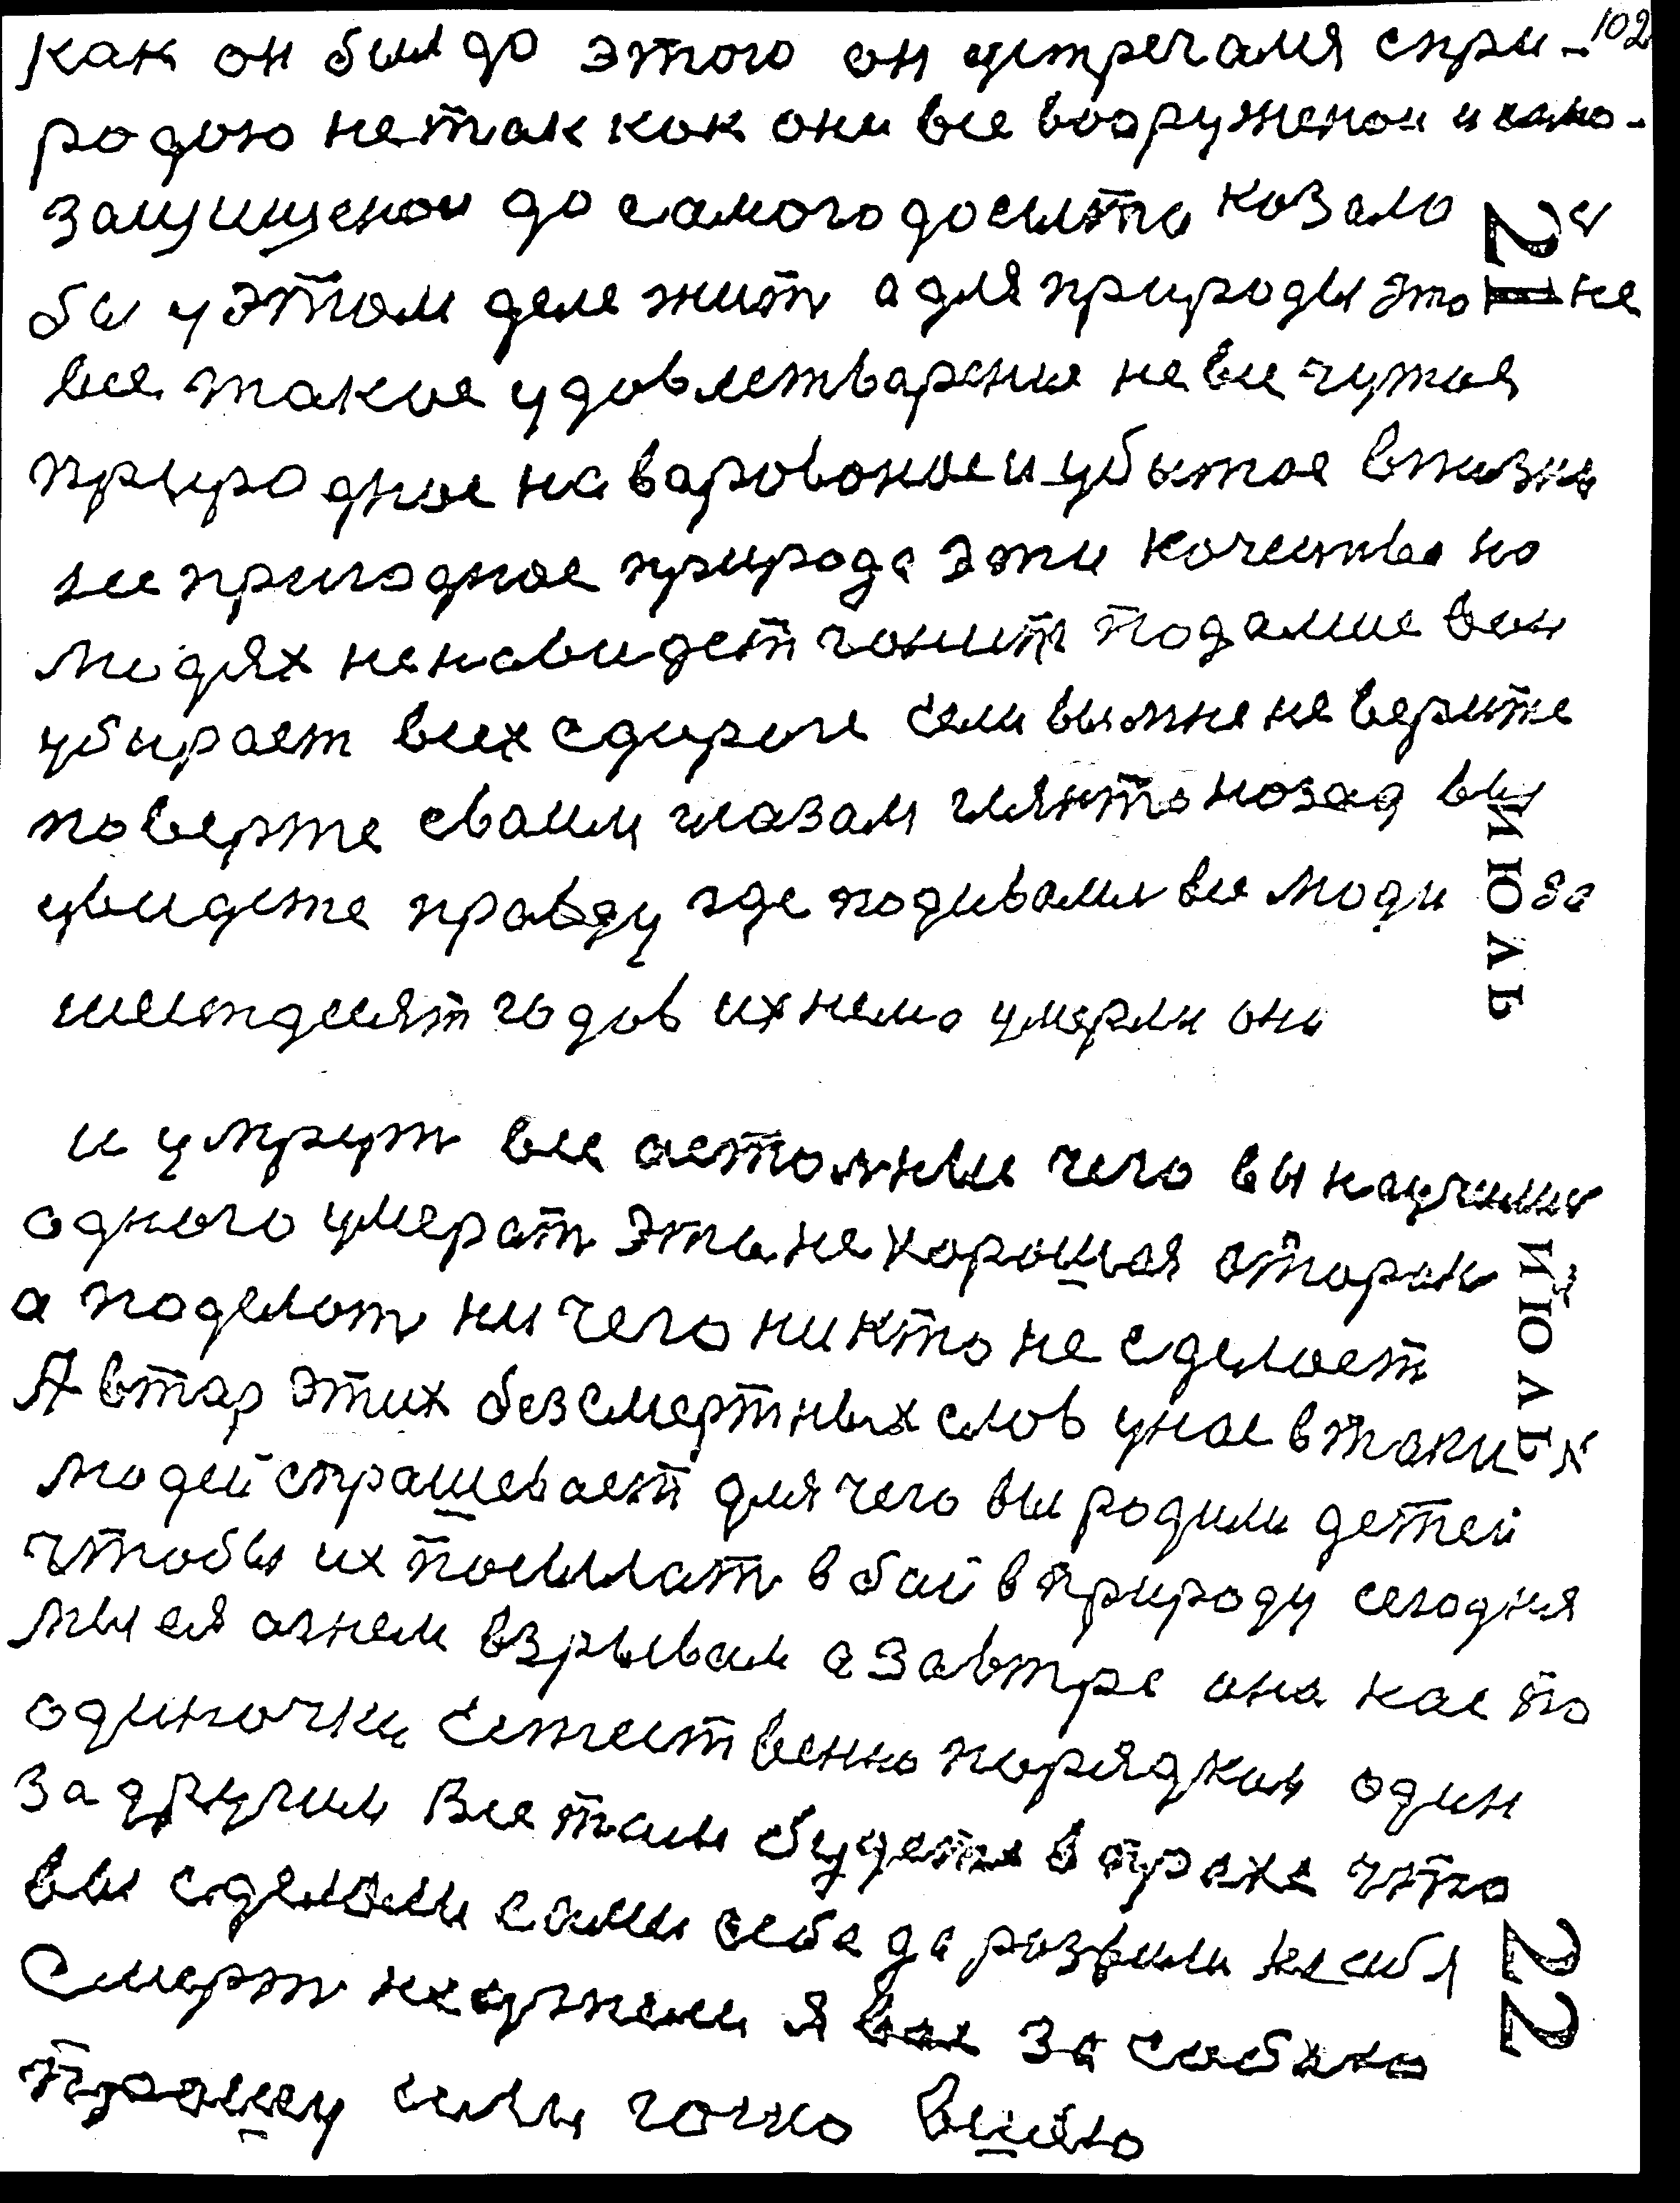 102
как он был до этого он устречался спри-
родою не так как они все вооруженои и само-
защищенои до самого досыта козалос
бы у этом деле жит а для природы это не
21
все такое удовлетварение не все чужое
природное наварованое и убытое в жизни
не пригодное природа эти качества на
людях не навидет гонит подалше вон
убирает всех сдироги если вы мне не верите
поверте сваим глазам гляньте назад вы
увидете правду где подивалис все люди за
ИЮЛЬ
шестдесят годов их нема умерли они
и умрут все астолние чего вы научилис
одного умерат эта не хорошая сторона
а поделат ни чего никто не сделает
ИЮЛЬ
Автар этих безсмертных слов унас в таких
людей спрашевает для чего вы родили детей
чтобы их посылат в бой в природу сегодня
мы ея огнем взрывали а завтра она нас по
одиночки естественно порядком один
за другим Все там будете в прахе что
вы сделали сами себе да розвили на себя
22
Смерт нежужели я вас за собаю
прошу силы гонко вишею